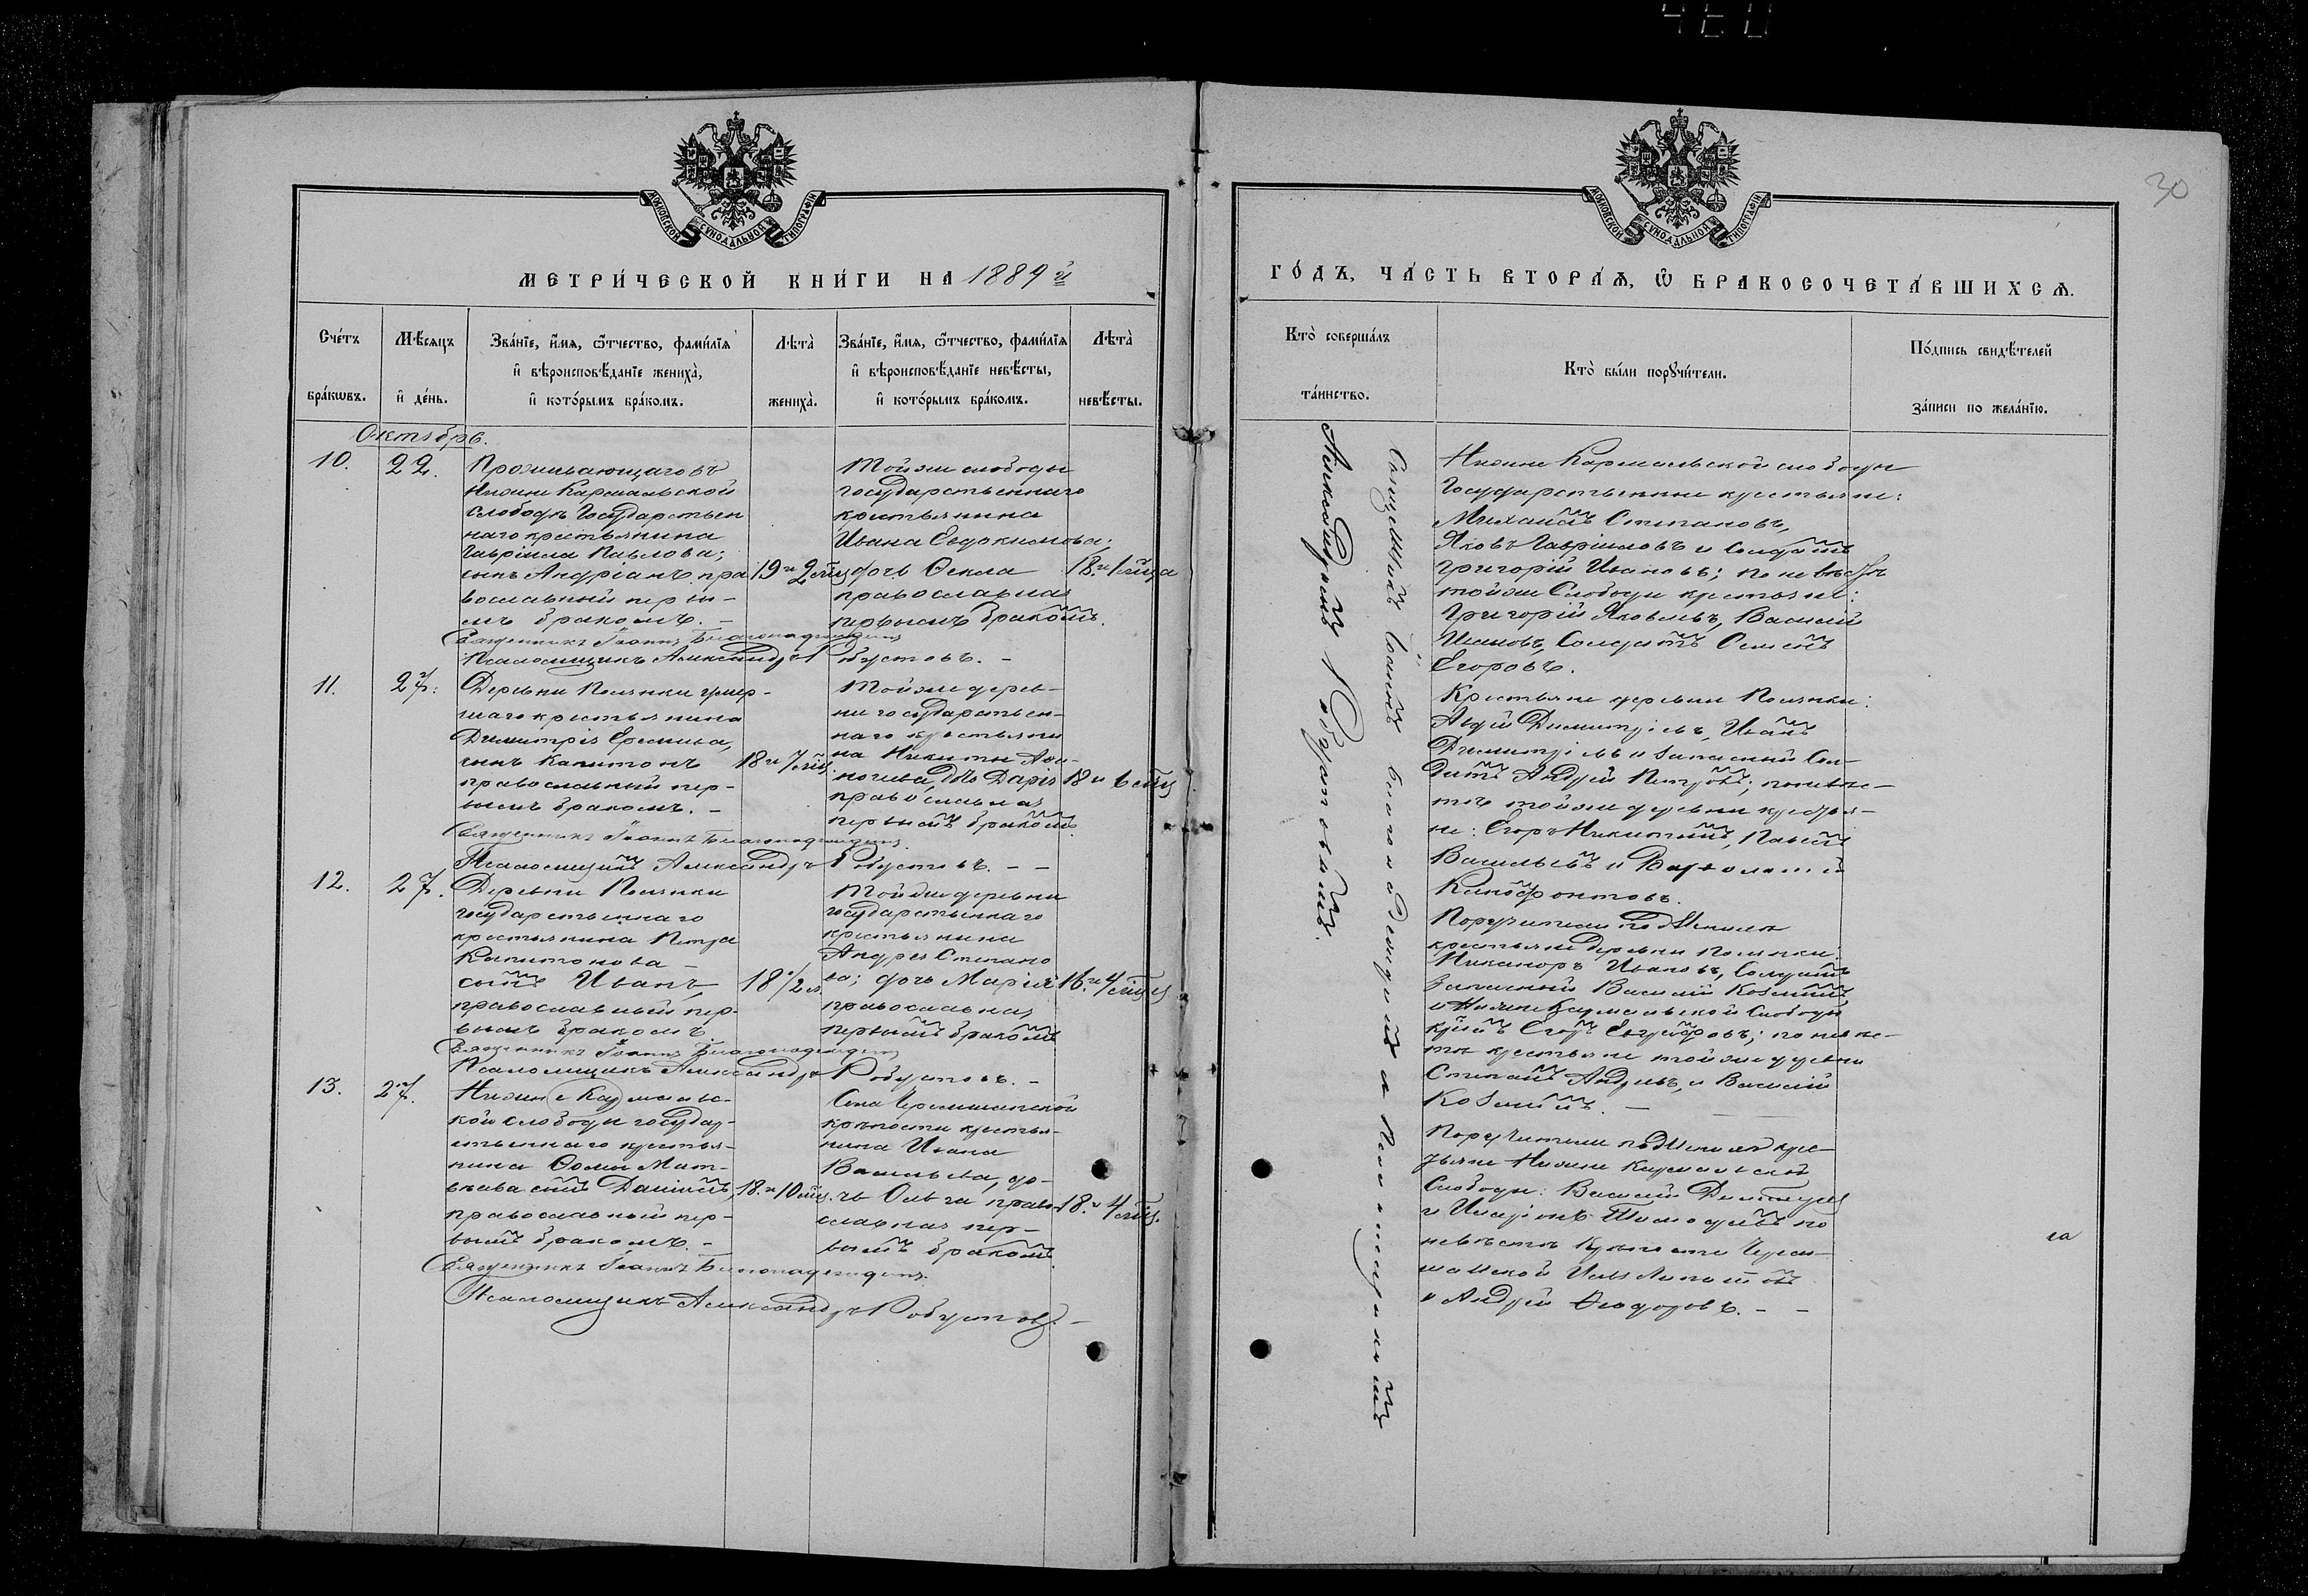 30
МОСКОВСКОЙ СѴНОДАЛЬНОЙ ТИПОГРАФІИ
МОСКОВСКОЙ СѴНОДАЛЬНОЙ ТИПОГРАФІИ
МЕТРИ́ЧЕСКОЙ КНИ́ГИ НА 1889й
ГО́ДЪ, ЧА́СТЬ ВТОРА́Ѧ, Ѿ БРАКОСОЧЕТА́ВШИХСѦ.
Сче́тъ бра́кѡвъ.
Мѣ́сяцъ и҆ де́нь.
Зва́нїе, и҆́мя, ѻ҆́тчество, фами́лїя и҆ вѣроисповѣ́данїе жениха̀, и҆ кото́рымъ бра́комъ.
Лѣта̀ жениха̀.
Зва́нїе, и҆́мя, ѻ҆́тчество, фами́лїя и҆ вѣроисповѣ́данїе невѣ́сты, и҆ кото́рымъ бра́комъ.
Лѣта̀ невѣ́сты.
Кто̀ соверша́лъ та́инство.
Кто̀ бы́ли порꙋчи́тели.
По́дпись свидѣ́телей за́писи по жела́нїю.
Октябрь.
10.
22.
Проживающаго въ
Нижне Кармальской
Слободѣ Государствен
наго крестьянина
Гавріила Павлова;
сынъ Андріанъ пра
вославный первы-
мъ бракомъ. -
19 и 2 мѣс
Тойже слободы
государственнаго
крестьянина
Ивана Евдокимова;
дочь Ѳекла
православная
первымъ бракомъ.
18 и 1 мѣсца
Священникъ Іоаннъ Благонадеждинъ
Псаломщикъ Александръ Робустовъ. -
11.
27.
Деревни Полянки умер-
шаго крестьянина
Димитрія Еремиева,
сынъ Капитонъ
православный пер-
вымъ бракомъ. -
18 и 7 мѣс
Тойже дерев-
ни государствен-
наго крестьяни
на Никиты
дочь Дарія
православная
первымъ бракомъ
18 и 6 мѣс
Священникъ Іоаннъ Благонадеждинъ.
Псаломщикъ Александръ Робустовъ. - -
12.
27.
Деревни Полянки
государственнаго
крестьянина Петра
Капитонова -
сынъ Иванъ,
православный пер-
вымъ бракомъ
18 1/2 л.
Тойже деревни
государственнаго
крестьянина
Андрея Степано
ва; дочь Марія
православная
первымъ бракомъ
16 и 4 мѣсц
Священникъ Іоаннъ Благонадеждинъ
Псаломщикъ Александръ Робустовъ. -
13.
27.
Нижне Кармаль-
кой слободы государ-
ственнаго крестья-
нина Ѳомы Мат-
вѣева сынъ Даніилъ,
православный пер-
вымъ бракомъ. -
18 и 10 мѣс.
Села Черемшанской
крѣпости крестья-
нина Ивана
Васильева, до-
чь Ольга право-
славная пер-
вымъ бракомъ.
18 и 4 мѣс.
Священникъ Іоаннъ Благонадеждинъ.
Псаломщикъ Александръ Робустовъ. -
Священникъ Іоаннъ Благонадеждинъ и Псаломщикомъ
Александромъ Робустовымъ.
Нижне Кармальской слободы
Государственные крестьяне:
Михаилъ Степановъ,
Яковъ Гавріиловъ и Солдатъ
Григорій Ивановъ; по невѣстѣ
тойже Слободы крестьяне:
Григорій Яковлевъ, Василій
Ивановъ, Солдатъ Семенъ
Егоровъ.
Крестьяне деревни Полянки:
Авдій Димитріевъ, Иванъ
Димитріевъ и запасный Сол-
датъ Андрей Петровъ; по невѣс-
тѣ тойже деревни крестья-
не: Егоръ Никитинъ, Павелъ
Васильевъ и Варѳоломей
Ксинофонтовъ.
Поручители по
крестьяне деревни Полянки:
Никаноръ Ивановъ, Солдатъ
Запасный Василій Козминъ
и Нижне Кармальской Слободы
Егоръ; по невѣс-
тѣ крестьяне тойже деревни
Степанъ Андреевъ, и Василій
Козминъ. -
Поручители по женихѣ крес-
тьяне Нижне Кармальской
Слободы: Василій Димитріевъ
и Иларіонъ Тимоѳеевъ по
невѣстѣ Крѣпости Черем-
шанской
и Андрей Ѳеодоровъ. - -